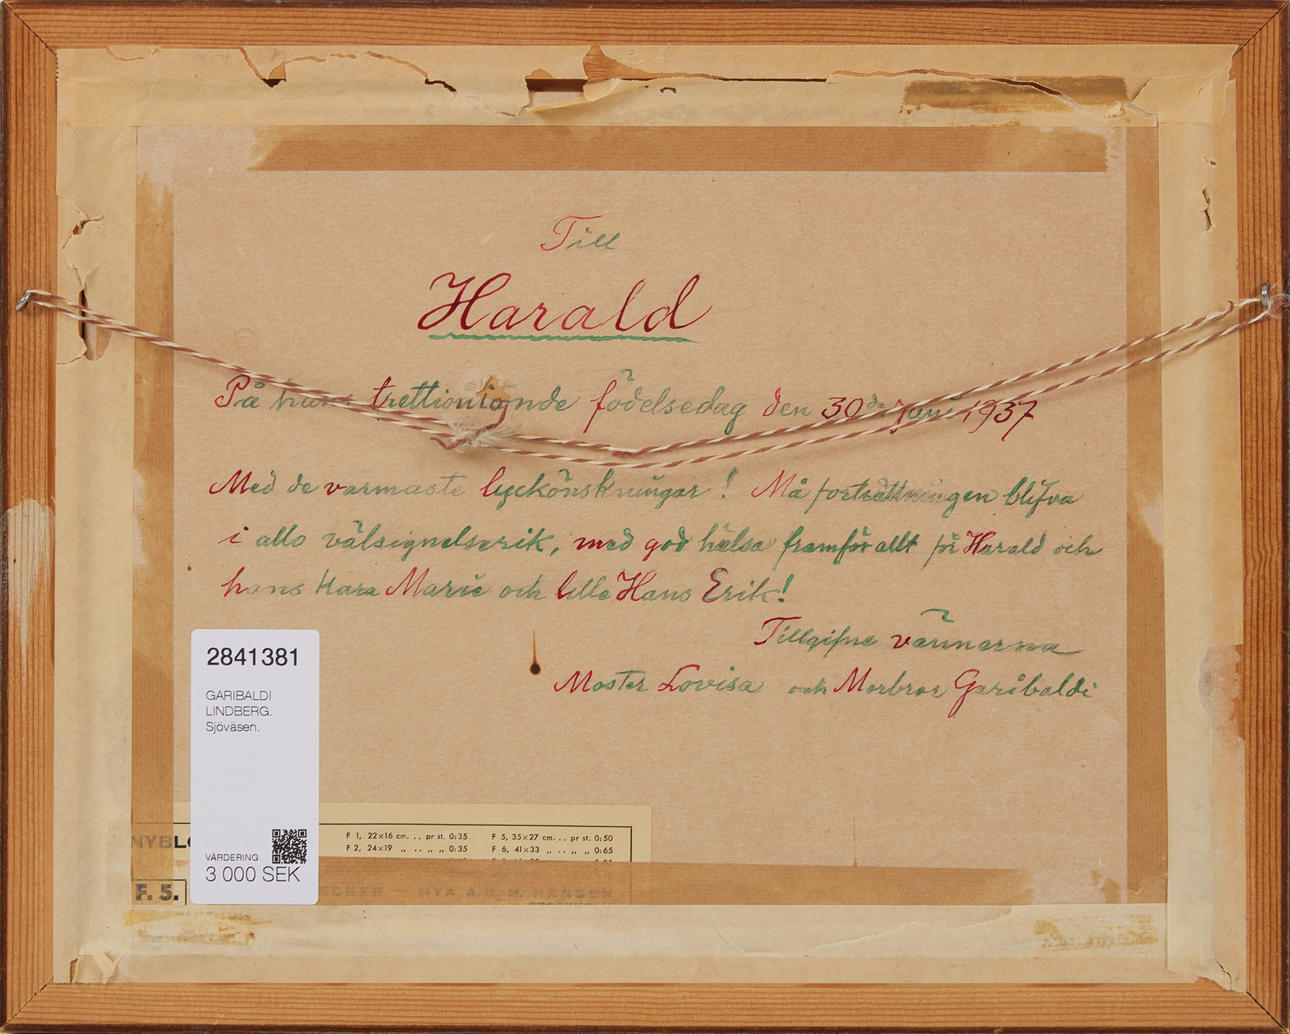 Till
Harald
På hans trettionionde födelsedag den 30de Juni 1937
Med de varmaste lyckönskningar! Må fortsättningen blifva
i allo välsignelserik, med god hälsa framför allt för Harald och
hans kära Marie och lille Hans Erik!
Tillgifne vännerna
Moster Lovisa och Morbror Garibaldi
2841381
GARIBALDI
LINDBERG.
Sjöväsen.
VÄRDERING
3 000 SEK
NYBLO
F 1, 22×16 cm... pr st. 0:35 F 5, 35×27 cm... pr st. 0:50
F 2, 24×19 „ .. „ „ 0:35 F 6, 41×33 „ .. „ „ 0:65
F. 5.
ECKER — NYA A.-B. M. HANSEN